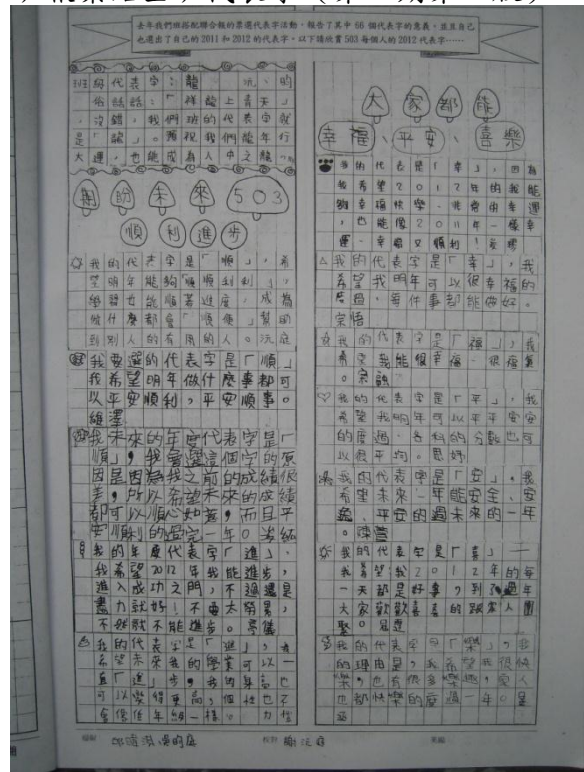 去年我們班搭配聯合報的票選代表字活動，報告了其中 66 個代表字的意義，並且自己
也選出了自己的 2011 和 2012 的代表字，以下請欣賞 503 每個人的 2012 代表字……
班級代表字：龍
俗話話：「祥龍上青天」
，沒錯，我們班的代表字就
是「龍」。預祝我們龍年行
大運，也能成為人中之龍
期盼未來503
順利進步
我的代表字是「順」，希
望明年能夠「順順利利」，
學習也能順著進度，成為
做什麼都會「順便」幫助
到別人的有用的人。沅庭
我要選的代表字是「順」
我希望明年做什麼事都可
以平安順利，平安順事。
我未來的年度代表字是「
順」，我會選這個字的原
因是因為我之前的成績很
差，所以希望未來的成績
都可以順心如意，而且平
安順利的過完一年。
我的年度代表字「進」，
我希望2012年我能進步，
進入成功之門，不過還是
盡力就好！不要太勞累，
不然就不能進步。
我的代表字是「進」，
希望未來我的學業可以一
直「進」步，我的身高也
可以變得更高，個性也不
會像低年級一樣。
大家都能
幸福、平安、喜樂
我的代表是「幸」，因為
我希望2012年的我能
夠幸福快樂，非常的幸運
，也能像2011年一樣幸
運、幸福又順利！
我的代表字是「幸」，我
希望我明年可以很幸福的
度過，每件事都能做好。
宗悟
我的代表字是「福」，我
希望我能很幸福、很
。宗融
我的代表字是「平」，我
希望我明年可以平平安安
的度過，各科的分數也可
以很平均。思妤
我的代表字是「安」。我
希望未來一年能安全、安
逸、平安的過未來的一年
。陳萱
我的代表字是「喜」
我希望我2012年的每
一天都是好事，到了過年
大家歡歡喜喜的跟家人團
聚。
我的代表字是「樂」，我
的理由是，我希望我很快
樂，也有很多樂趣，家人
也都快樂的度過一年。